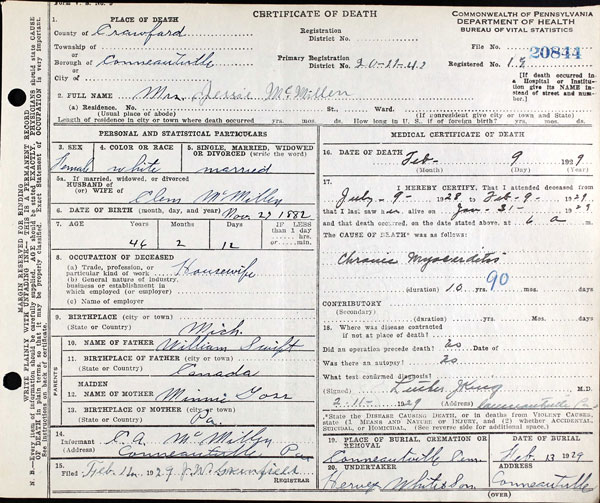 CERTIFICATE OF DEATH
COMMONWEALTH OF PENNSYLVANIA
DEPARTMENT OF HEALTH
BUREAU OF VITAL STATISTICS
1. PLACE OF DEATH
County of Crawford
Township of
or
Borough of Conneautville
or
City of
Registration
District No.
Primary Registration
District No. 20-11-42
File No. 20844
Registered No. 19
[If death occurred in
a Hospital or Institu-
tion give its NAME in-
stead of street and
number.]
2. FULL NAME Mrs. Jessie McMillen
(a) Residence. No. St. Ward.
(Usual place of abode) (If nonresident give city or town and State)
Length of residence in city or town where death occurred yrs. mos. ds. How long in U.S., if of foreign birth? yrs. mos. ds.
PERSONAL AND STATISTICAL PARTICULARS
3. SEX 4. COLOR OR RACE 5. SINGLE, MARRIED, WIDOWED
OR DIVORCED (write the word)
Female white married
5a. If married, widowed, or divorced
HUSBAND of
(or) WIFE of Clem McMillen
6. DATE OF BIRTH (month, day, and year) Nov. 27 1882
7. AGE YEARS MONTHS DAYS If LESS than
1 day
hrs.
or min.
46 2 12
8. OCCUPATION OF DECEASED
(a) Trade, profession, or
particular kind of work Housewife
(b) General nature of industry,
business or establishment in
which employed (or employer)
(c) Name of employer
9. BIRTHPLACE (city or town)
(State or Country) Mich.
PARENTS
10. NAME OF FATHER William Swift
11. BIRTHPLACE OF FATHER (city or town)
(State or Country) Canada
12. MAIDEN
NAME OF MOTHER Minnie
13. BIRTHPLACE OF MOTHER (city or town)
(State or Country) Pa.
14. Informant C.A. McMillen
(Address) Conneautville Pa
15. Filed Feb 12 1929
MEDICAL CERTIFICATE OF DEATH
16. DATE OF DEATH Feb- 9 1929
(Month) (Day) (Year)
17. I HEREBY CERTIFY, That I attended deceased from
July-9- 1928 to Feb-9- 1929
that I last saw her alive on Jan-31- 1929
and that death occurred, on the date stated above, at 6 a m.
The CAUSE OF DEATH* was as follows:
Chronic Myocarditis
90
(duration) 10 yrs. mos. ds.
CONTRIBUTORY
(Secondary)
(duration) yrs. mos. days
18. Where was disease contracted
if not at place of death?
Did an operation precede death? no
Was there an autopsy? no
What test confirmed diagnosis?
(Signed) Luther J King M.D.
2-11- 1929 (Address) Conneautville Pa
*State the DISEASE CAUSING DEATH, or in deaths from VIOLENT CAUSES,
state 1 MEANS AND NATURE OF INJURY, and (2) whether ACCIDENTAL,
SUICIDAL, or HOMICIDAL. (See reverse side for additional space.)
19. PLACE OF BURIAL, CREMATION OR
REMOVAL
Conneautville Penn
DATE OF BURIAL
Feb. 13 1929
20. UNDERTAKER
Hervey White & Son
ADDRESS
Conneautville
(OVER)
MARGIN RESERVED FOR BINDING
WRITE PLAINLY WITH UNFADING INK—THIS IS A PERMANENT RECORD
N. B.—Every item of information should be carefully supplied. AGE should be stated EXACTLY. PHYSICIANS should state CAUSE
OF DEATH in plain terms, so that it may be properly classified. Exact Statement of OCCUPATION is very important.
See instructions on back of certificate.